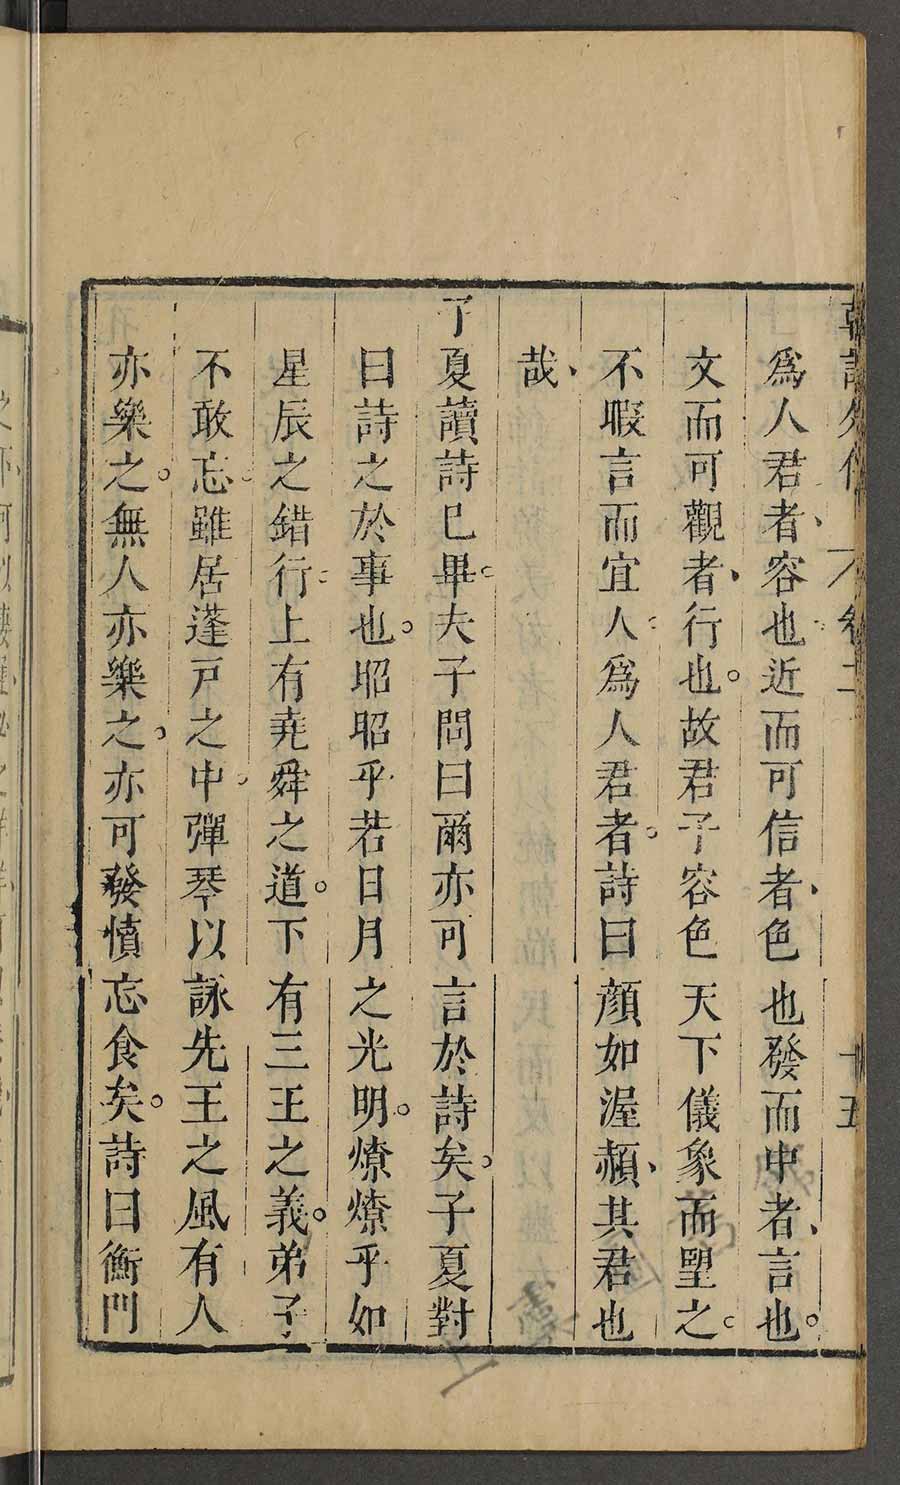 韓詩外傳 卷二 十五
爲人君者、容也近而可信者、色也發而中者、言也。
文而可觀者、行也。故君子容色天下儀象而望之。
不暇言而宜人。爲人君者。詩曰顏如渥赭、其君也
哉、
子夏讀詩已畢。夫子問曰爾亦可言於詩矣。子夏對
曰詩之於事也。昭昭乎若日月之光明。燎燎乎如
星辰之錯行。上有堯舜之道。下有三王之義。弟子
不敢忘。雖居蓬戸之中。彈琴以詠先王之風有人
亦樂之。無人亦樂之。亦可發憤忘食矣。詩曰衡門